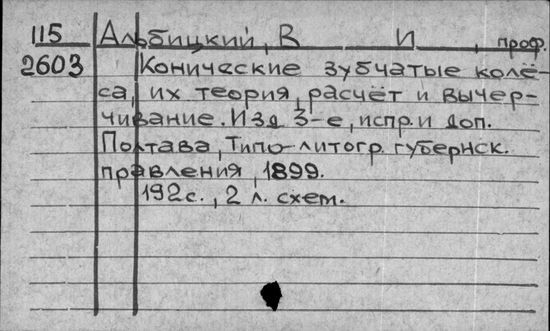 115 Альбицкий, В И , проф.
2603 Конические зубчатые колё-
са, их теория, расчёт и вычер-
чивание. Изд 3-е, испр. и доп.
Полтава, Типо-литогр. губернск.
правления, 1899.
192с., 2 л. схем.